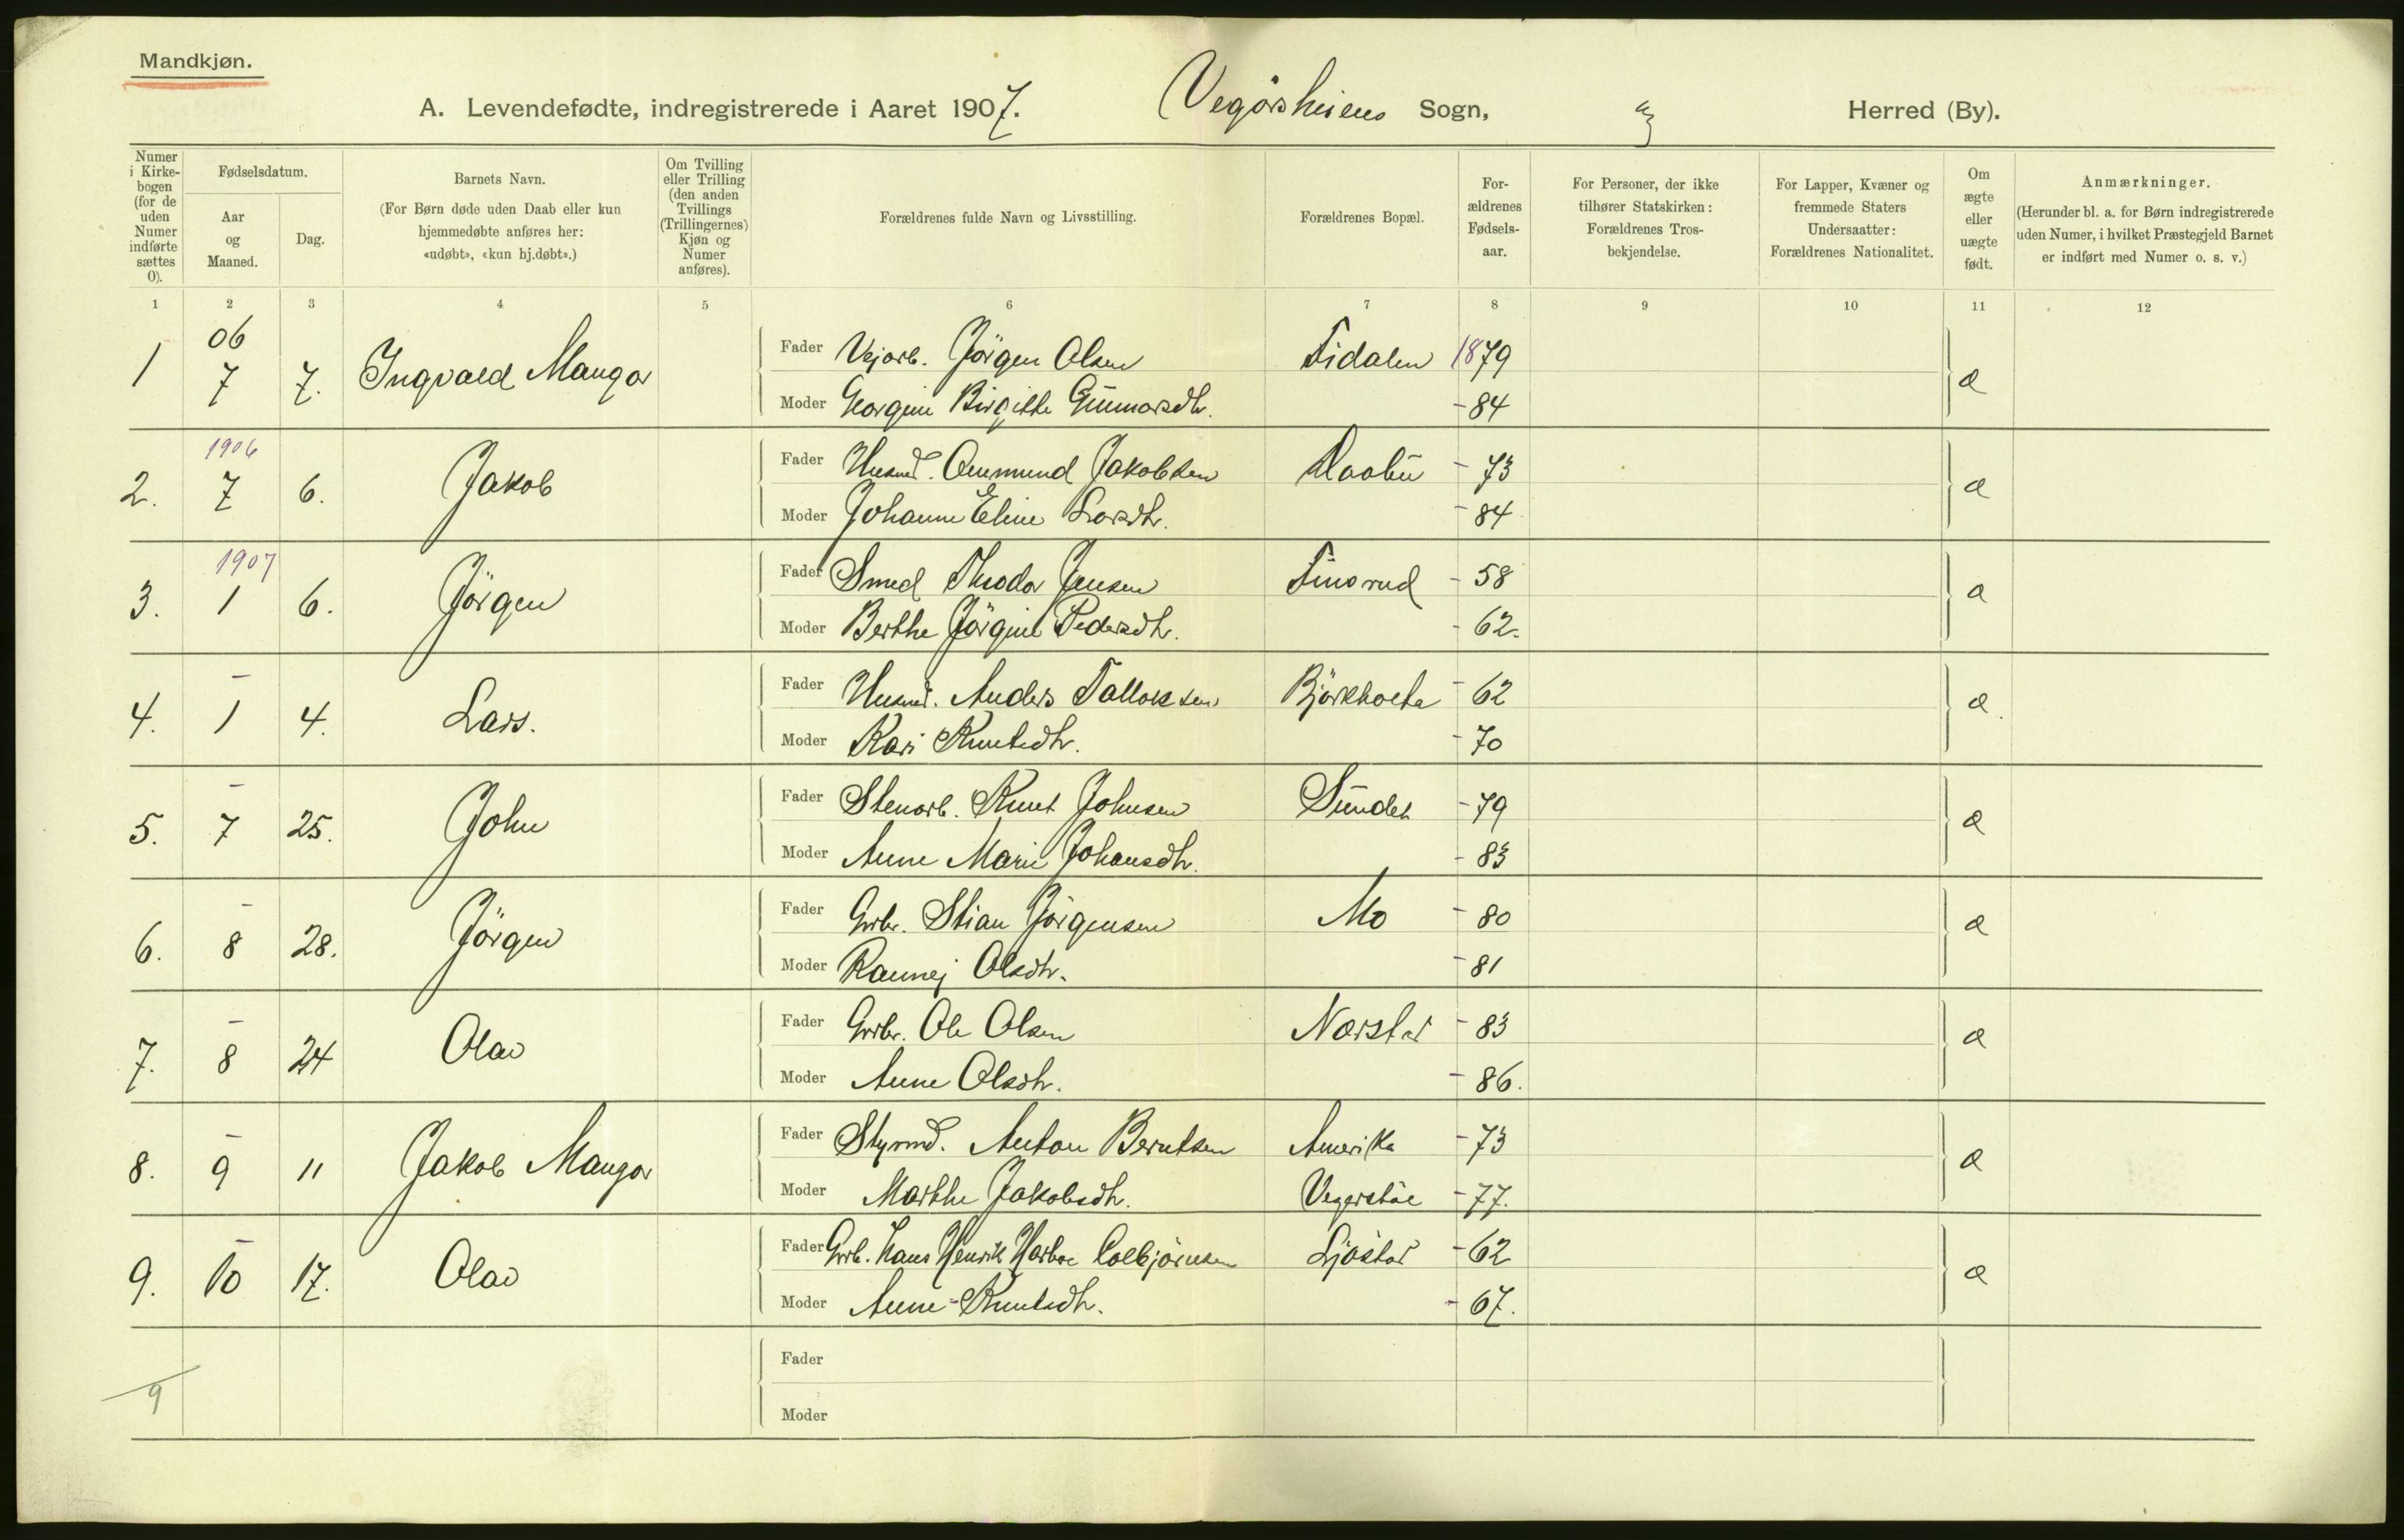 Mandkjøn.
A. Levendefødte, indregistrerede i Aaret 1907. Vegårsheiens Sogn, Herred (By).
Numer i Kirkebogen (for de uden Numer indførte sættes 0).
Fødselsdatum.
Aar og Maaned.
Dag.
Barnets Navn.
(For Børn døde uden Daab eller kun hjemmedøbte anføres her: «udøbt», «kun hj.døbt».)
Om Tvilling eller Trilling (den anden Tvillings (Trillingernes) Kjøn og Numer anføres).
Forældrenes fulde Navn og Livsstilling.
Forældrenes Bopæl.
Forældrenes Fødselsaar.
For Personer, der ikke tilhører Statskirken: Forældrenes Trosbekjendelse.
For Lapper, Kvæner og fremmede Staters Undersaatter: Forældrenes Nationalitet.
Om ægte eller uægte født.
Anmærkninger.
(Herunder bl. a. for Børn indregistrerede uden Numer, i hvilket Præstegjeld Barnet er indført med Numer o. s. v.)
1 2 3 4 5 6 7 8 9 10 11 12
06
1 7 7. Ingvald Mangor Fader Vejarb. Jörgen Olsen Fidalen 1879 æ
Moder Georgine Birgitte Gunnarsdtr. - 84
1906
2. 7 6. Jakob Fader Husmd. Aamund Jakobsen - 73 æ
Moder Johanne Eline Larsdtr. - 84
1907
3. 1 6. Jörgen Fader Smed Theodor Jensen Finsrud - 58 æ
Moder Berthe Jörgine Pedersdtr. - 62.
-
4. 1 4. Lars. Fader Husmd. Anders Tallaksen - 62 æ.
Moder Kari Knutsdtr. - 70
-
5. 7 25. John Fader Stenarb. Knut Johnsen Sundet - 79 æ
Moder Anne Marie Johansdtr. - 83
-
6. 8 28. Jörgen Fader Grbr. Stian Jörgensen Mo - 80 æ
Moder Rannej Olsdtr. - 81
-
7. 8 24 Olav Fader Grbr. Ole Olsen Norstad - 83 æ
Moder Anne Olsdtr. - 86.
-
8. 9 11 Jakob Mangor Fader Styrmd. Anton Berntsen Amerika - 73 æ
Moder Marthe Jakobsdtr. - 77.
-
9. 10 17. Olav Fader Grb. Hans Henrik Harboe Colbjörnsen - 62 æ
Moder Anne Knutsdtr. - 67.
Fader
9
Moder